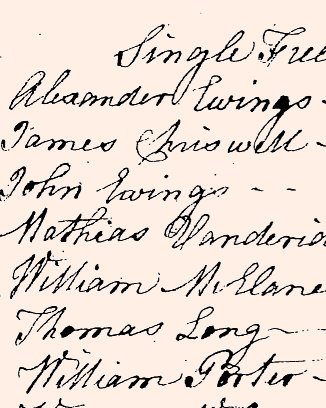 Single Free
Alexander Ewings -
James Chriswell -
John Ewings - -
Mathias Vanderid
William McElane
Thomas Long -
William Porter -